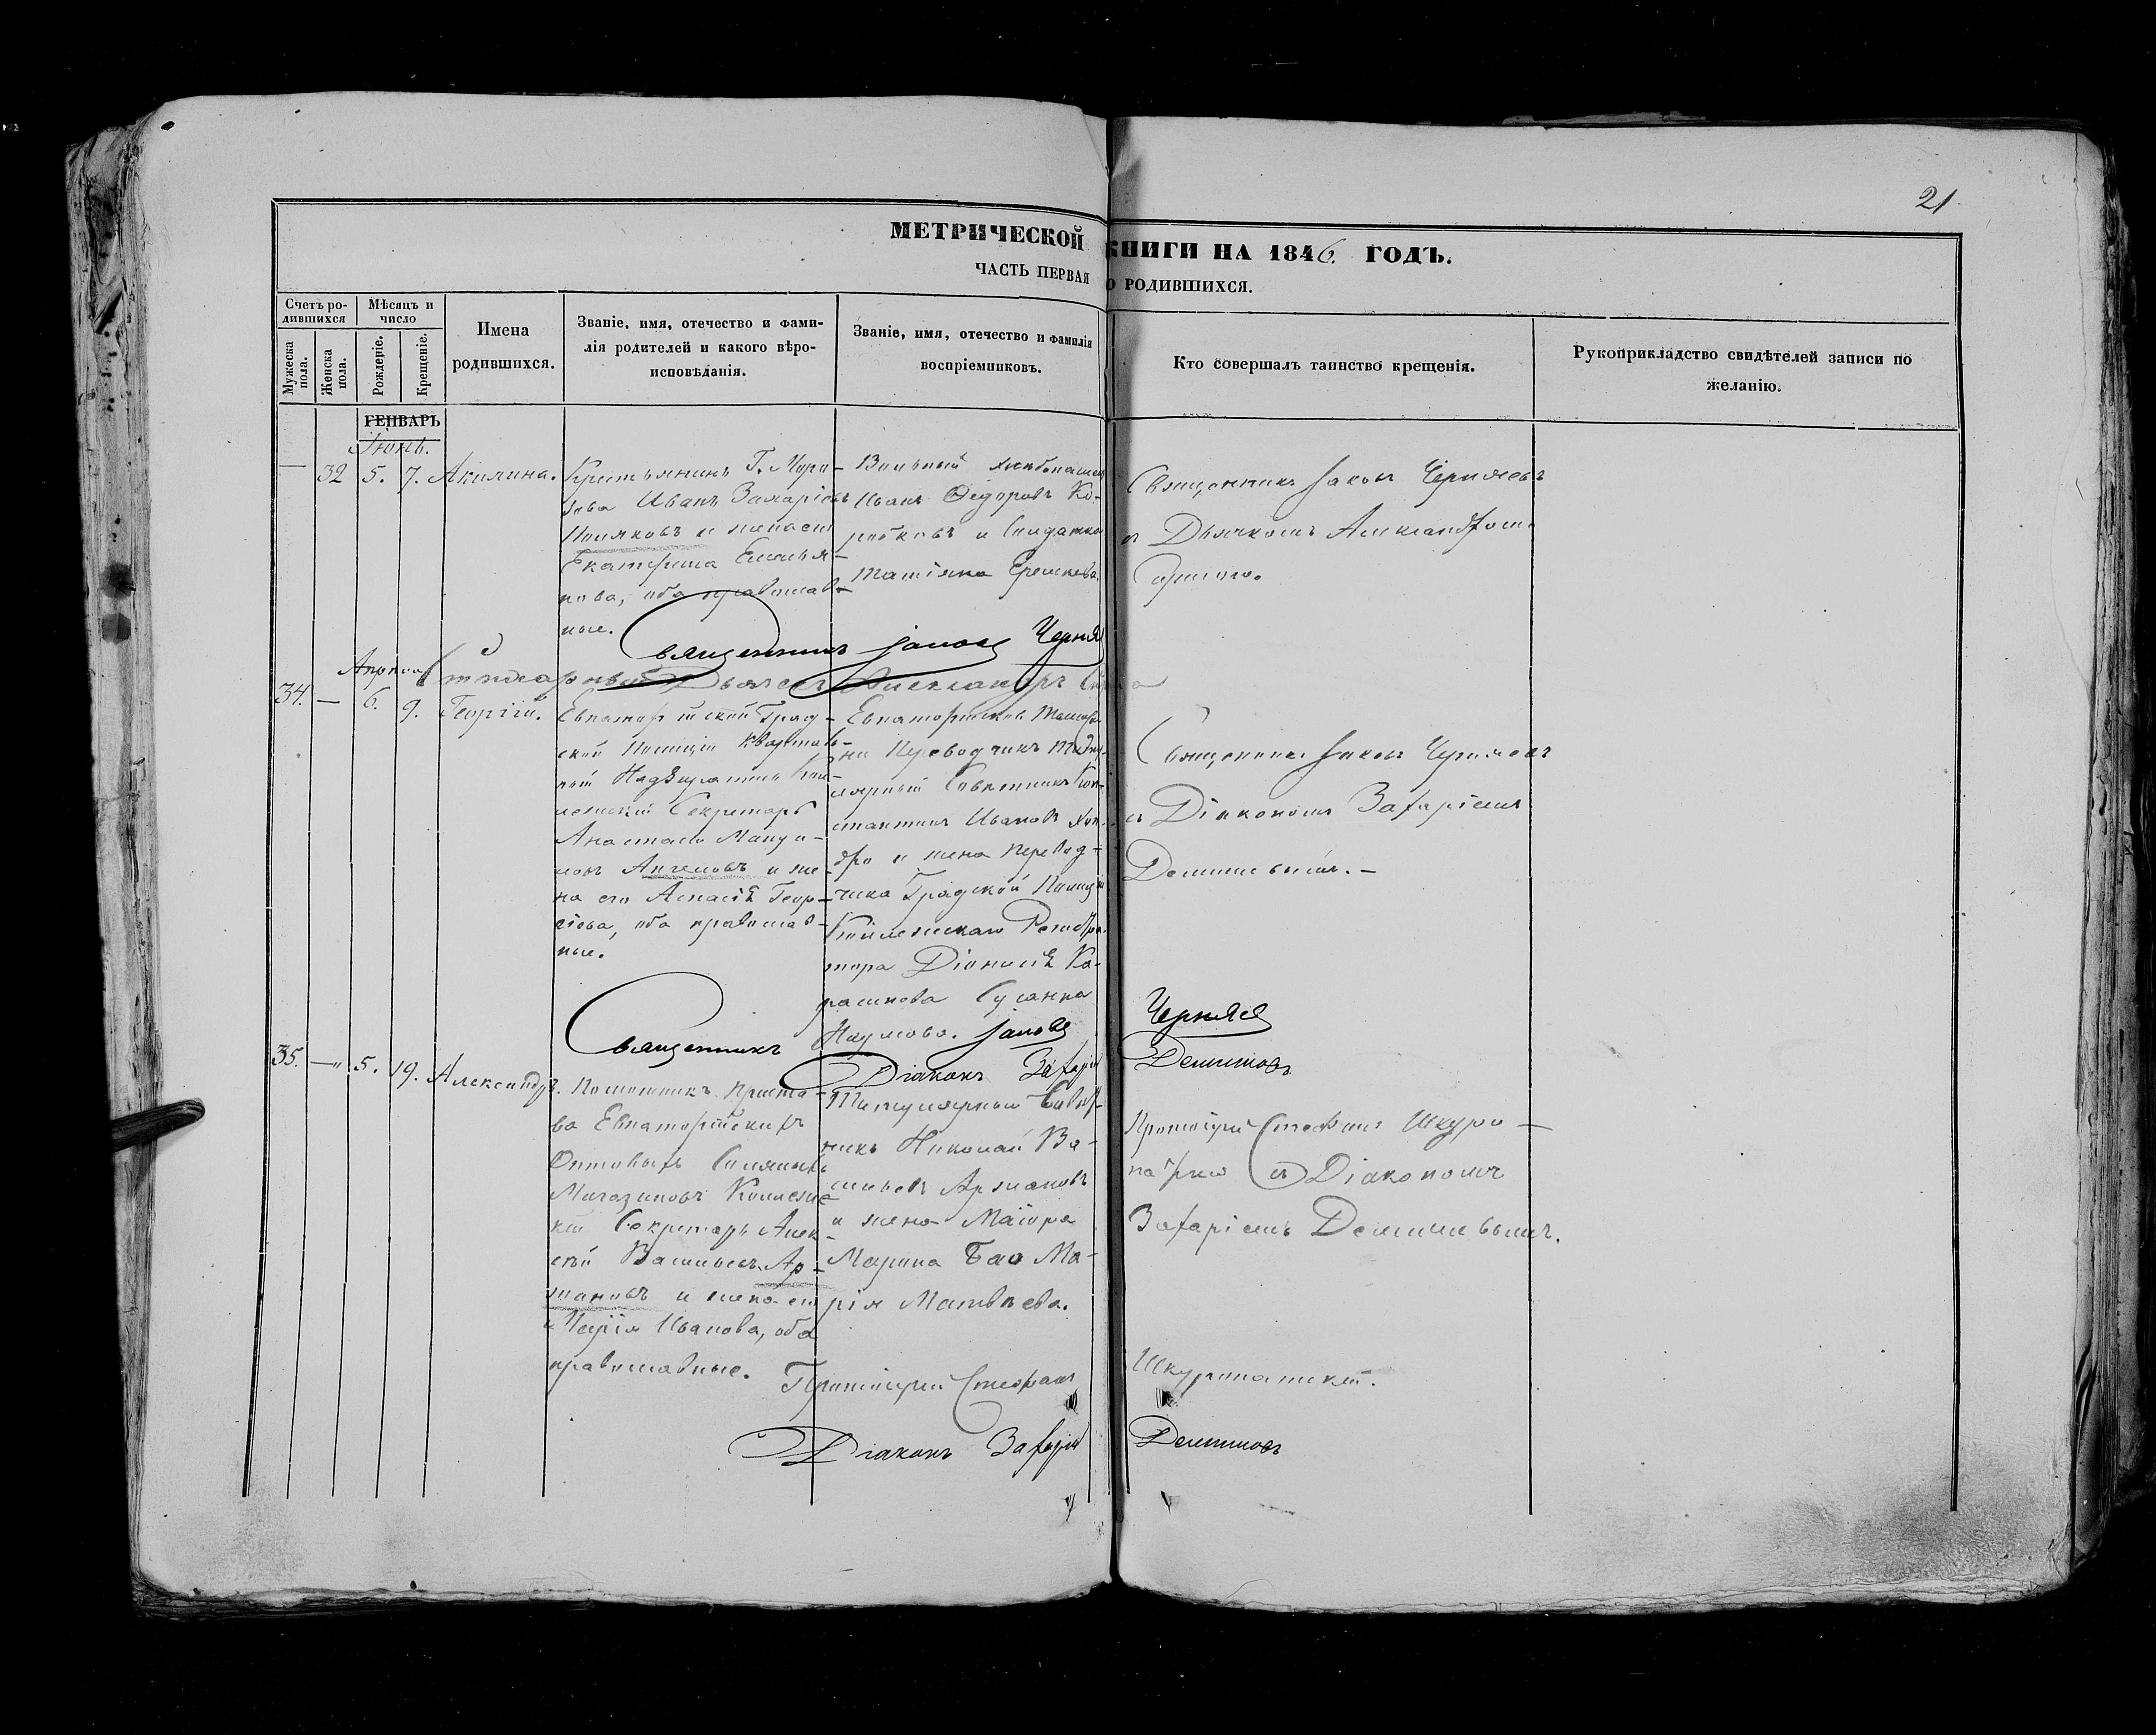 21
МЕТРИЧЕСКОЙ КНИГИ НА 1846. ГОДЪ.
ЧАСТЬ ПЕРВАЯ О РОДИВШИХСЯ.
Счетъ ро-
дившихся
Мужеска пола.
Женска пола.
Мѣсяцъ и
число
Рожденіе.
Крещеніе.
Имена
родившихся.
Званіе, имя, отечество и фами-
лія родителей и какого вѣро-
исповѣданія.
Званіе, имя, отечество и фамилія
воспріемниковъ.
Кто совершалъ таинство крещенія.
Рукоприкладство свидѣтелей записи по
желанію.
ГЕНВАРЬ
Іюнь.
— 32 5. 7. Акилина.
Крестьянинъ Г.
Иванъ Захаріевъ
Поляковъ и жена его
Екатерина Емелья-
нова, оба православ-
ные.
Вольный хлѣбопашецъ
Иванъ Ѳедоровъ Ко-
и Солдатка
Татіяна
Священникъ Іаковъ Чернявъ
съ Дьячкомъ Александромъ
Священникъ Іаковъ Черняв
Дьячекъ Александръ
34. — 6. 9. Георгій.
Евпаторійской Град-
ской Полиціи Кварталь-
ный Надзиратель Кол-
лежскій Секретарь
Анастасъ Мануи-
ловъ Ангеловъ и же-
на его Аспасія Геор-
гіева, оба православ-
ные.
Евпаторійской Таможе-
ни Переводчикъ Титу-
лярный Совѣтникъ Кон-
стантинъ Ивановъ
и жена Перевод-
чика Градской Полиціи
Коллежскаго Регистра-
тора Діонисія Ка-
Сусанна
Наумова.
Священникъ Іаковъ Чернявъ
съ Діакономъ Захаріемъ
Демишевымъ. —
Священникъ Іаковъ Чернявъ
Діаконъ Захарій Демишовъ
35. — 5. 19. Александръ.
Помощникъ Приста-
ва Евпаторійскихъ
Оптовыхъ Соляныхъ
Магазиновъ Коллежс-
кій Секретарь Алек-
сѣй Васильевъ Ар-
мановъ и жена его
Марія Иванова, оба
православные.
Титулярный Совѣт-
никъ Николай Ва-
сильевъ Армановъ
и жена Маіора
Марина Бао Ма-
рія Матвѣева.
Протоіерей Стефанъ Шкуро-
съ Діакономъ
Захаріемъ Демишевымъ.
Протоіерей Стефанъ Шкуропатскій.
Діаконъ Захарій Демишовъ